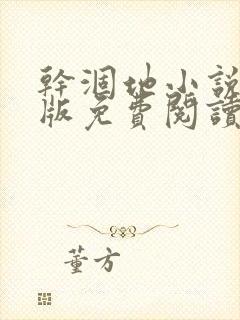 幹涸地小說
版免費閱讀
董方